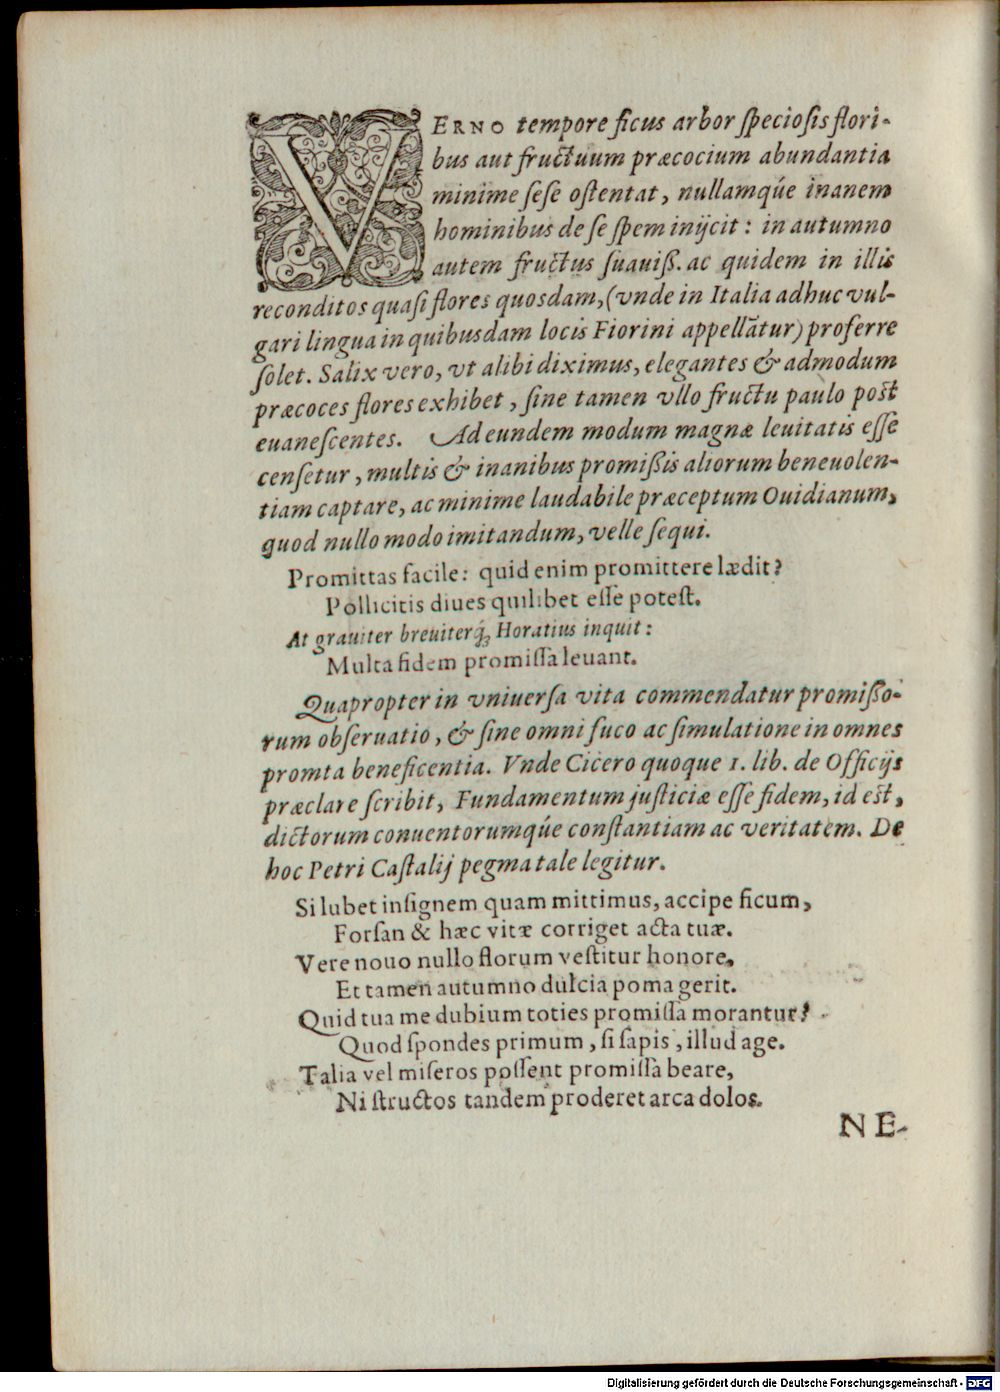 VERNO tempore ficus arbor ſpecioſis flori-
bus aut fructuum præcocium abundantia
minime ſeſe oſtentat, nullamqúe inanem
hominibus de ſe ſpem inijcit: in autumno
autem fructus ſuauiß. ac quidem in illis
reconditos quaſi flores quosdam, (vnde in Italia adhuc vul-
gari lingua in quibusdam locis Fiorini appellãtur) proferre
ſolet. Salix vero, vt alibi diximus, elegantes & admodum
præcoces flores exhibet, ſine tamen vllo fructu paulo post
euaneſcentes. Ad eundem modum magnæ leuitatis eſſe
cenſetur, multis & inanibus promißis aliorum beneuolen-
tiam captare, ac minime laudabile præceptum Ouidianum,
quod nullo modo imitandum, velle ſequi.
Promittas facile: quid enim promittere lædit?
Pollicitis diues quilibet eſſe poteſt.
At grauiter breuiterq́ꝫ Horatius inquit:
Multa fidem promiſſa leuant.
Quapropter in vniuerſa vita commendatur promißo-
rum obſeruatio, & ſine omni fuco ac ſimulatione in omnes
promta beneficentia. Vnde Cicero quoque 1. lib. de Officijs
præclare ſcribit, Fundamentum juſticiæ eſſe fidem, id est,
dictorum conuentorumqúe conſtantiam ac veritatem. De
hoc Petri Caſtalij pegma tale legitur.
Si lubet inſignem quam mittimus, accipe ficum,
Forſan & hæc vitæ corriget acta tuæ.
Vere nouo nullo florum veſtitur honore,
Et tamen autumno dulcia poma gerit.
Quid tua me dubium toties promiſſa morantur?
Quod ſpondes primum, ſi ſapis, illud age.
Talia vel miſeros poſſent promiſſa beare,
Ni ſtructos tandem proderet arca dolos.
NE-
Digitalisierung gefördert durch die Deutsche Forschungsgemeinschaft - DFG